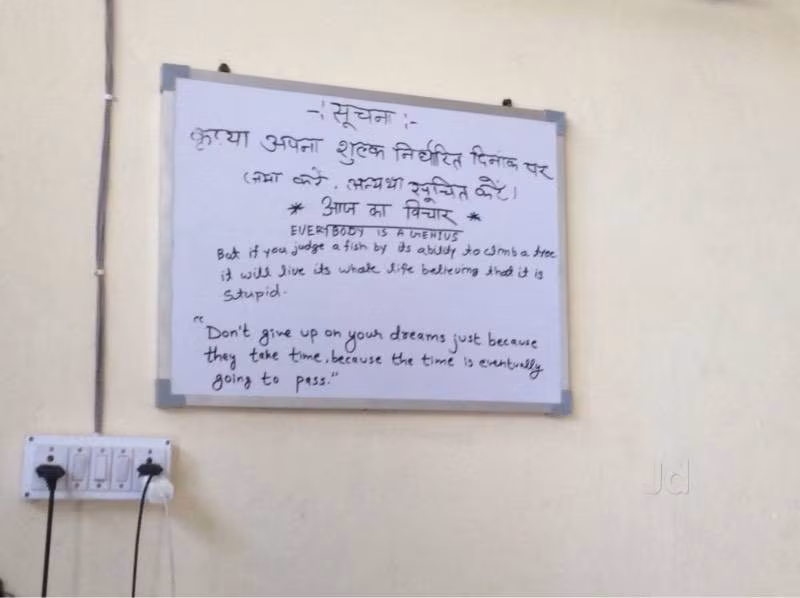 -: सूचना :-
कृप्या अपना शुल्क निर्धारित दिनांक पर
जमा करें, अन्यथा सूचित करें।
* आज का विचार *
EVERYBODY IS A GENIUS
But if you judge a fish by its ability to climb a tree
it will live its whole life believing that it is
Stupid.
"Don't give up on your dreams just because
they take time, because the time is eventually
going to pass."
Jd